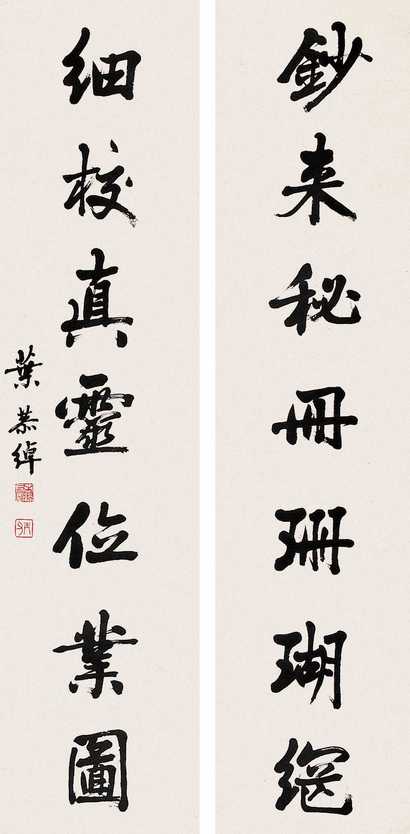 鈔来秘冊珊瑚網
細校真靈位業圖
葉恭綽